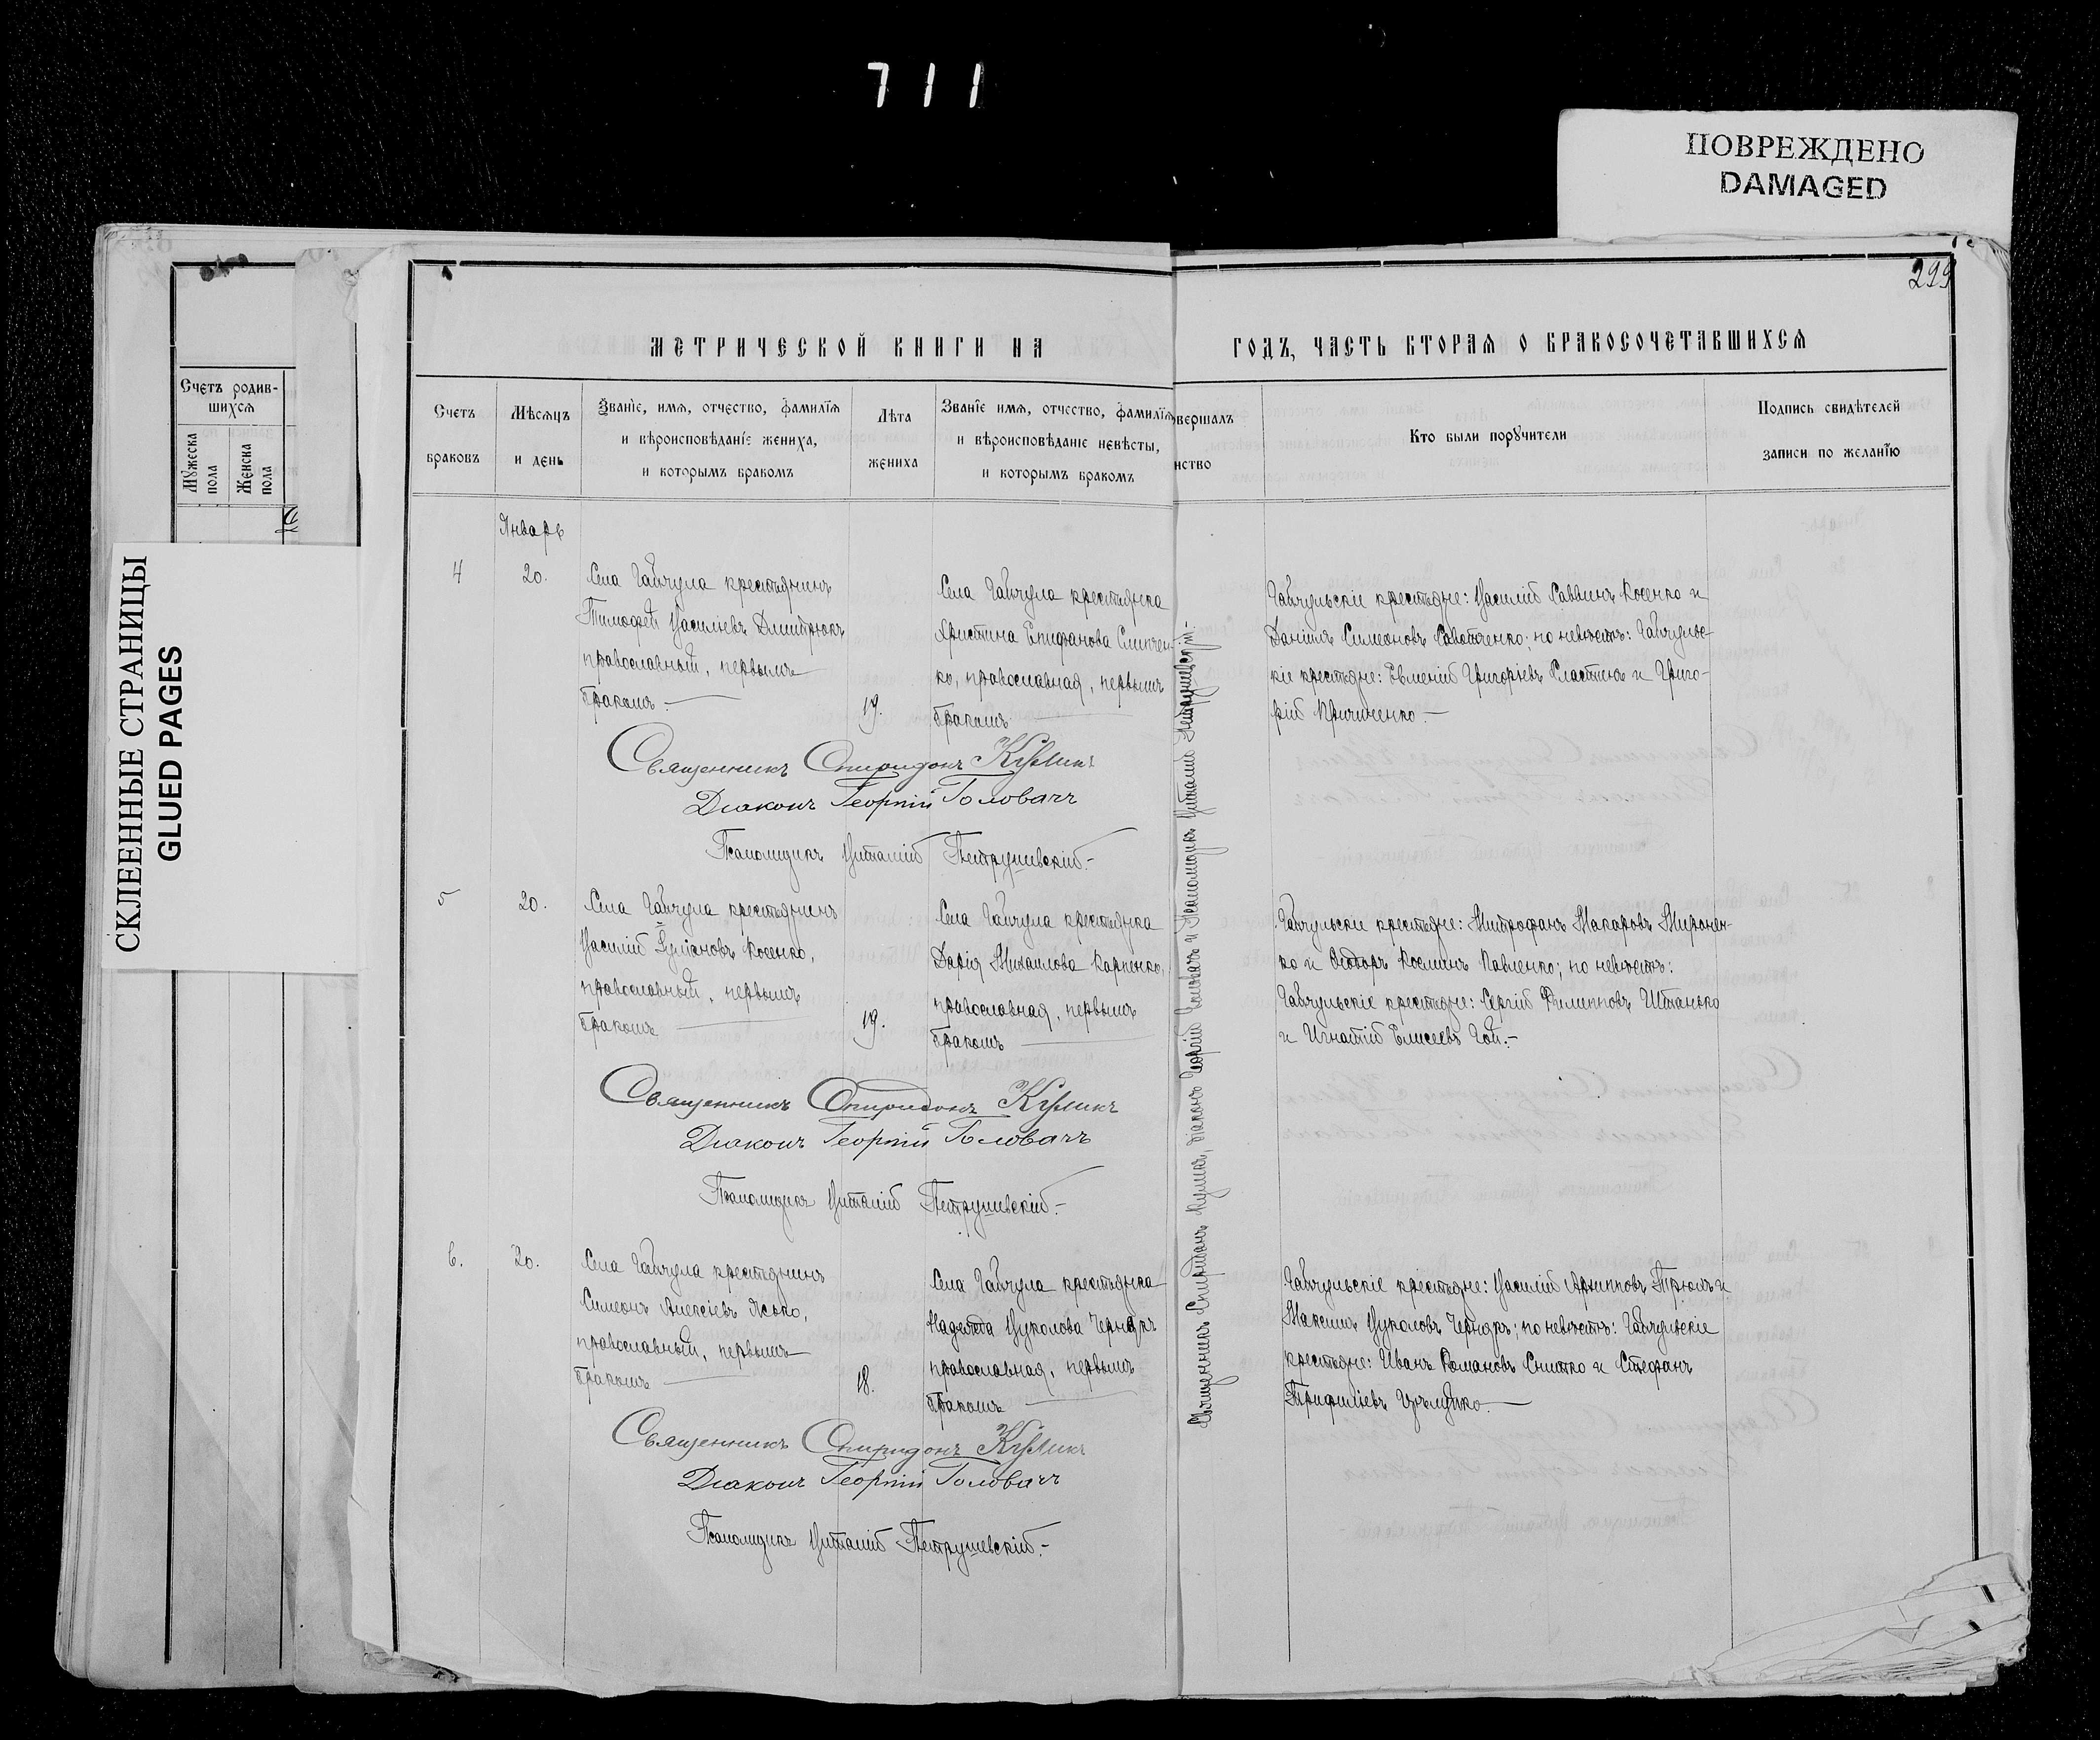 711
ПОВРЕЖДЕНО
DAMAGED
СКЛЕЕННЫЕ СТРАНИЦЫ
GLUED PAGES
299
Счетъ родив-
шихся
Мужеска
пола
Женска
пола
МЕТРИЧЕСКОЙ КНИГИ НА ГОДЪ, ЧАСТЬ ВТОРАЯ О БРАКОСОЧЕТАВШИХСЯ
Счетъ
браковъ
Мѣсяцъ
и день
Званіе, имя, отчество, фамилїя
и вѣроисповѣданіе жениха,
и которымъ бракомъ
Лѣта
жениха
Званіе имя, отчество, фамилїя
и вѣроисповѣданіе невѣсты,
и которымъ бракомъ
овершалъ
нство
Кто были поручители
Подпись свидѣтелей
записи по желанїю
Январь
4
20.
Села Гайчула крестьянинъ
Тимофей Василіевъ Дмитрюкъ
православный, первымъ
бракомъ.—
19.
Села Гайчула крестьянка
Христина Епифанова Слипчен-
ко, православная, первымъ
бракомъ
Гайчульскіе крестьяне: Василій Саввинъ Косенко и
Даніилъ Симеоновъ; по невѣстѣ: Гайчульс-
кіе крестьяне: Евменій Григорьевъ Сластинъ и Григо-
рій Кириченко.—
Священникъ Спиридонъ Куликъ
Діаконъ Георгій Головачъ
Псаломщикъ Виталій Петрушевскій.-
5
20.
Села Гайчула крестьянинъ
Василій Косенко,
православный, первымъ
бракомъ
19.
Села Гайчула крестьянка
Дарія Михаилова Карпенко,
православная, первымъ
бракомъ
Гайчульскіе крестьяне: Митрофанъ Макаровъ Миронен-
ко и Ѳеодоръ Косминъ Павленко; по невѣстѣ:
Гайчульскіе крестьяне: Сергій Филипповъ Штанько
и Игнатій Елисеевъ Гой.-
Священникъ Спиридонъ Куликъ
Діаконъ Георгій Головачъ
Псаломщикъ Виталій Петрушевскій.-
6.
20.
Села Гайчула крестьянинъ
Симеонъ Алексіевъ Ясько,
православный, первымъ
бракомъ
18.
Села Гайчула крестьянка
Надежда Вуколова Чернякъ
православная, первымъ
бракомъ
Гайчульскіе крестьяне: Василій Архипповъ и
Максимъ Вуколовъ Чернякъ; по невѣстѣ: Гайчульскіе
крестьяне: Иванъ Романовъ Снитко и Стефанъ
Трифиліевъ
Священникъ Спиридонъ Куликъ
Діаконъ Георгій Головачъ
Псаломщикъ Виталій Петрушевскій.-
Священникъ Спиридонъ Куликъ, діаконъ Георгій Головачъ и Псаломщикъ Виталій Петрушевскій.-